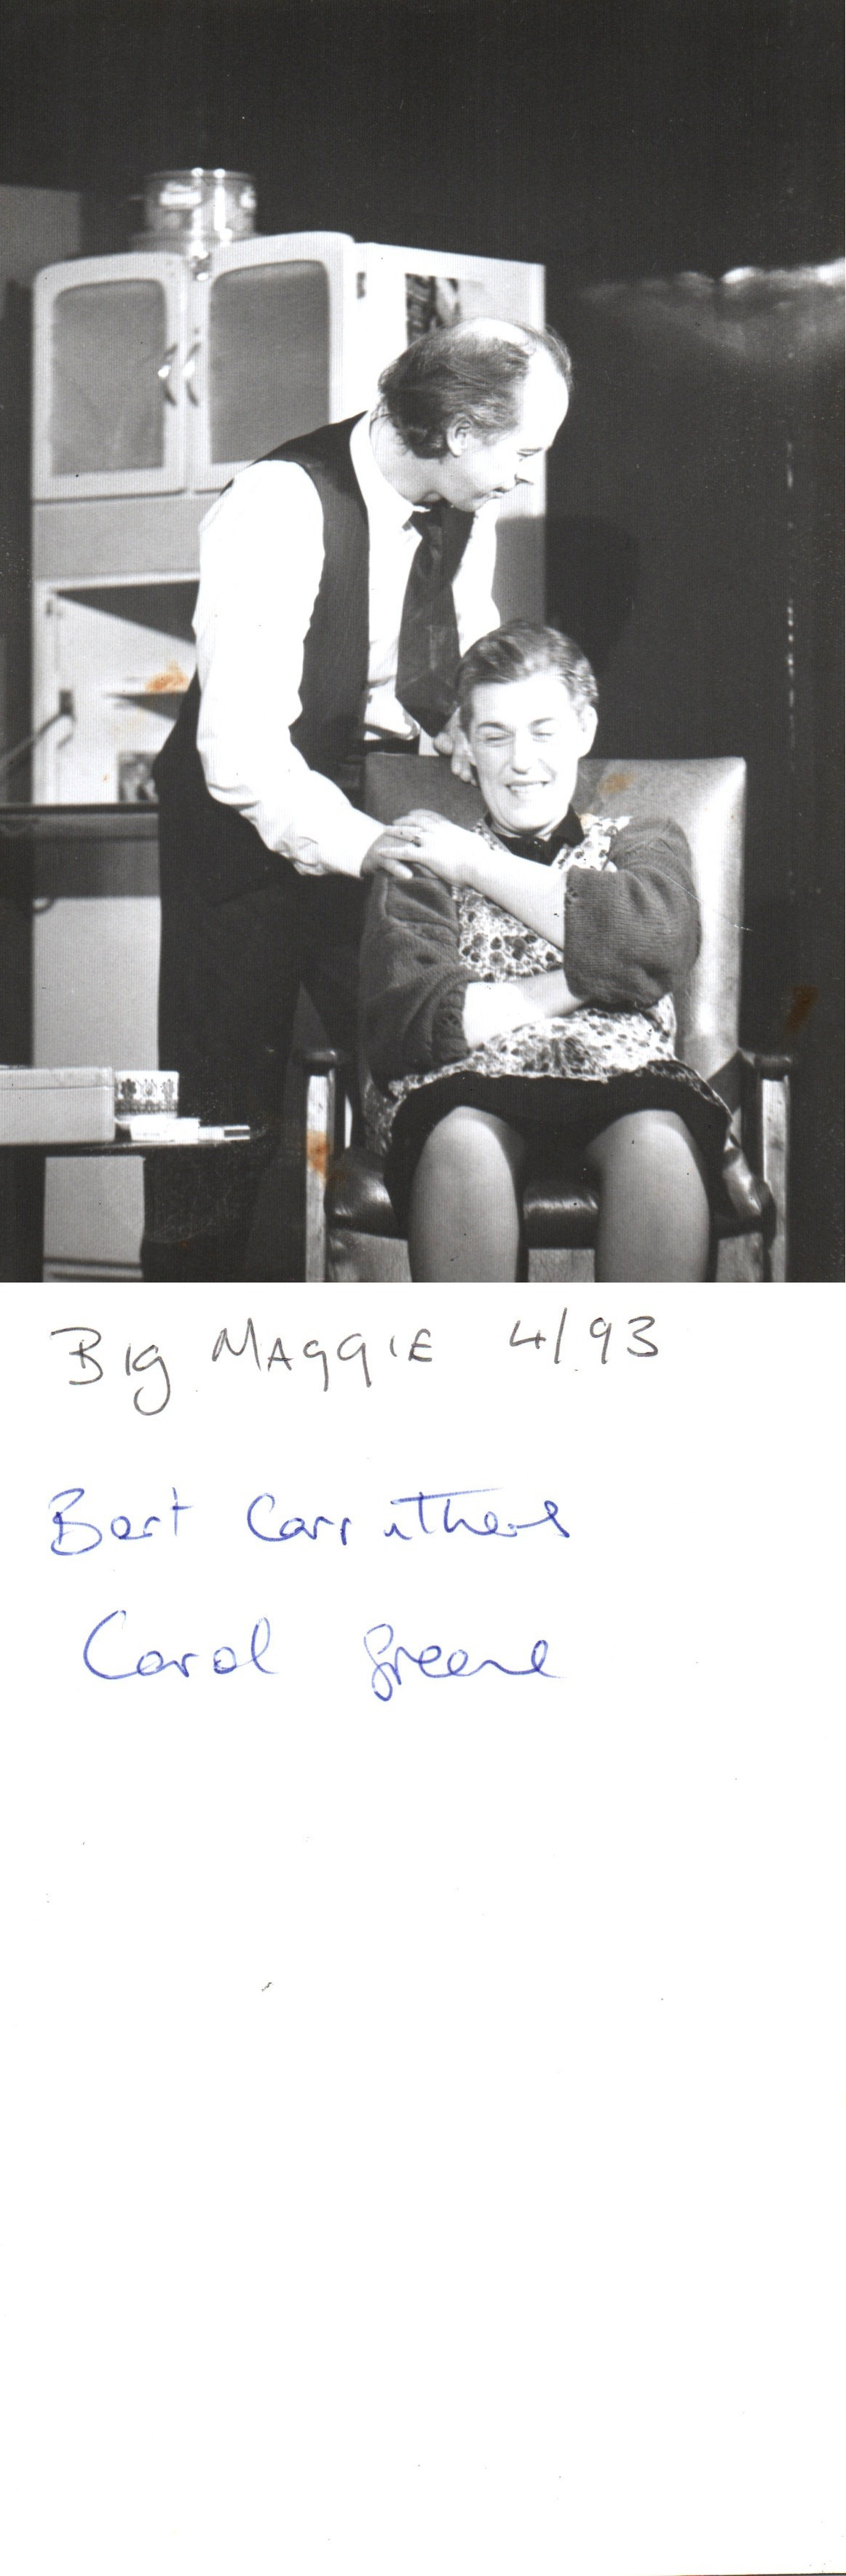 Big MAggIE 4/93
Bert Carruthers
Carol Greene